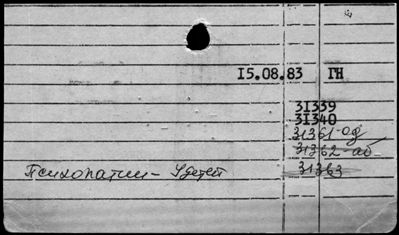 15.08.83 ГН
31339
31340
31361-од
31362-аб
Психопатии - У детей 31363